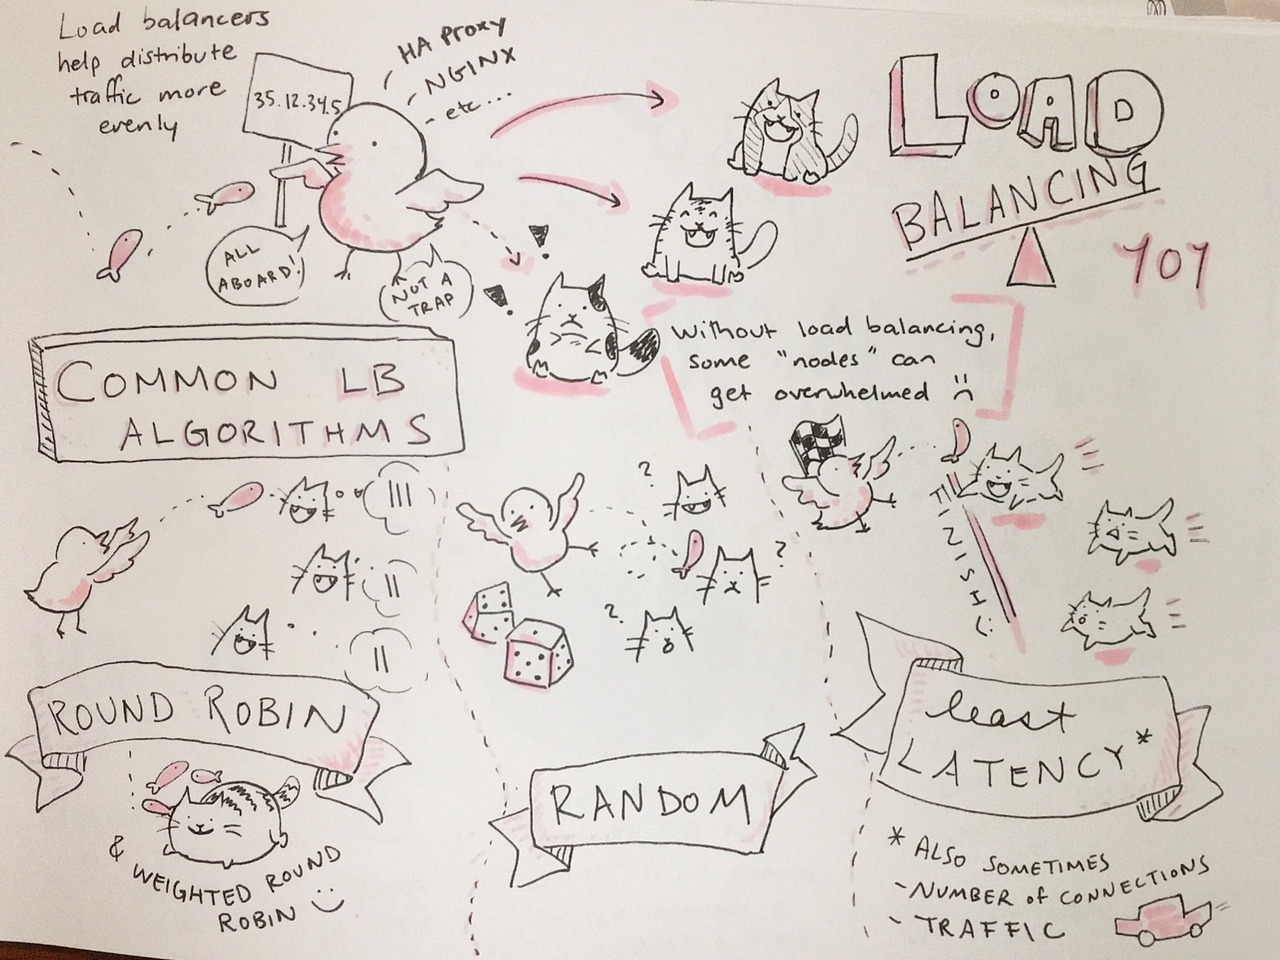 Load balancers
help distribute
traffic more
evenly
35.12.34.5
HA Proxy
NGINX
etc...
ALL
ABOARD!
NOT A
TRAP
LOAD
BALANCING
101
Without load balancing,
some "nodes" can
get overwhelmed :(
COMMON LB
ALGORITHMS
III
II
II
ROUND ROBIN
& WEIGHTED ROUND
ROBIN :)
?
?
?
RANDOM
FINISH
least
LATENCY*
* ALSO SOMETIMES
- NUMBER of CONNECTIONS
- TRAFFIC